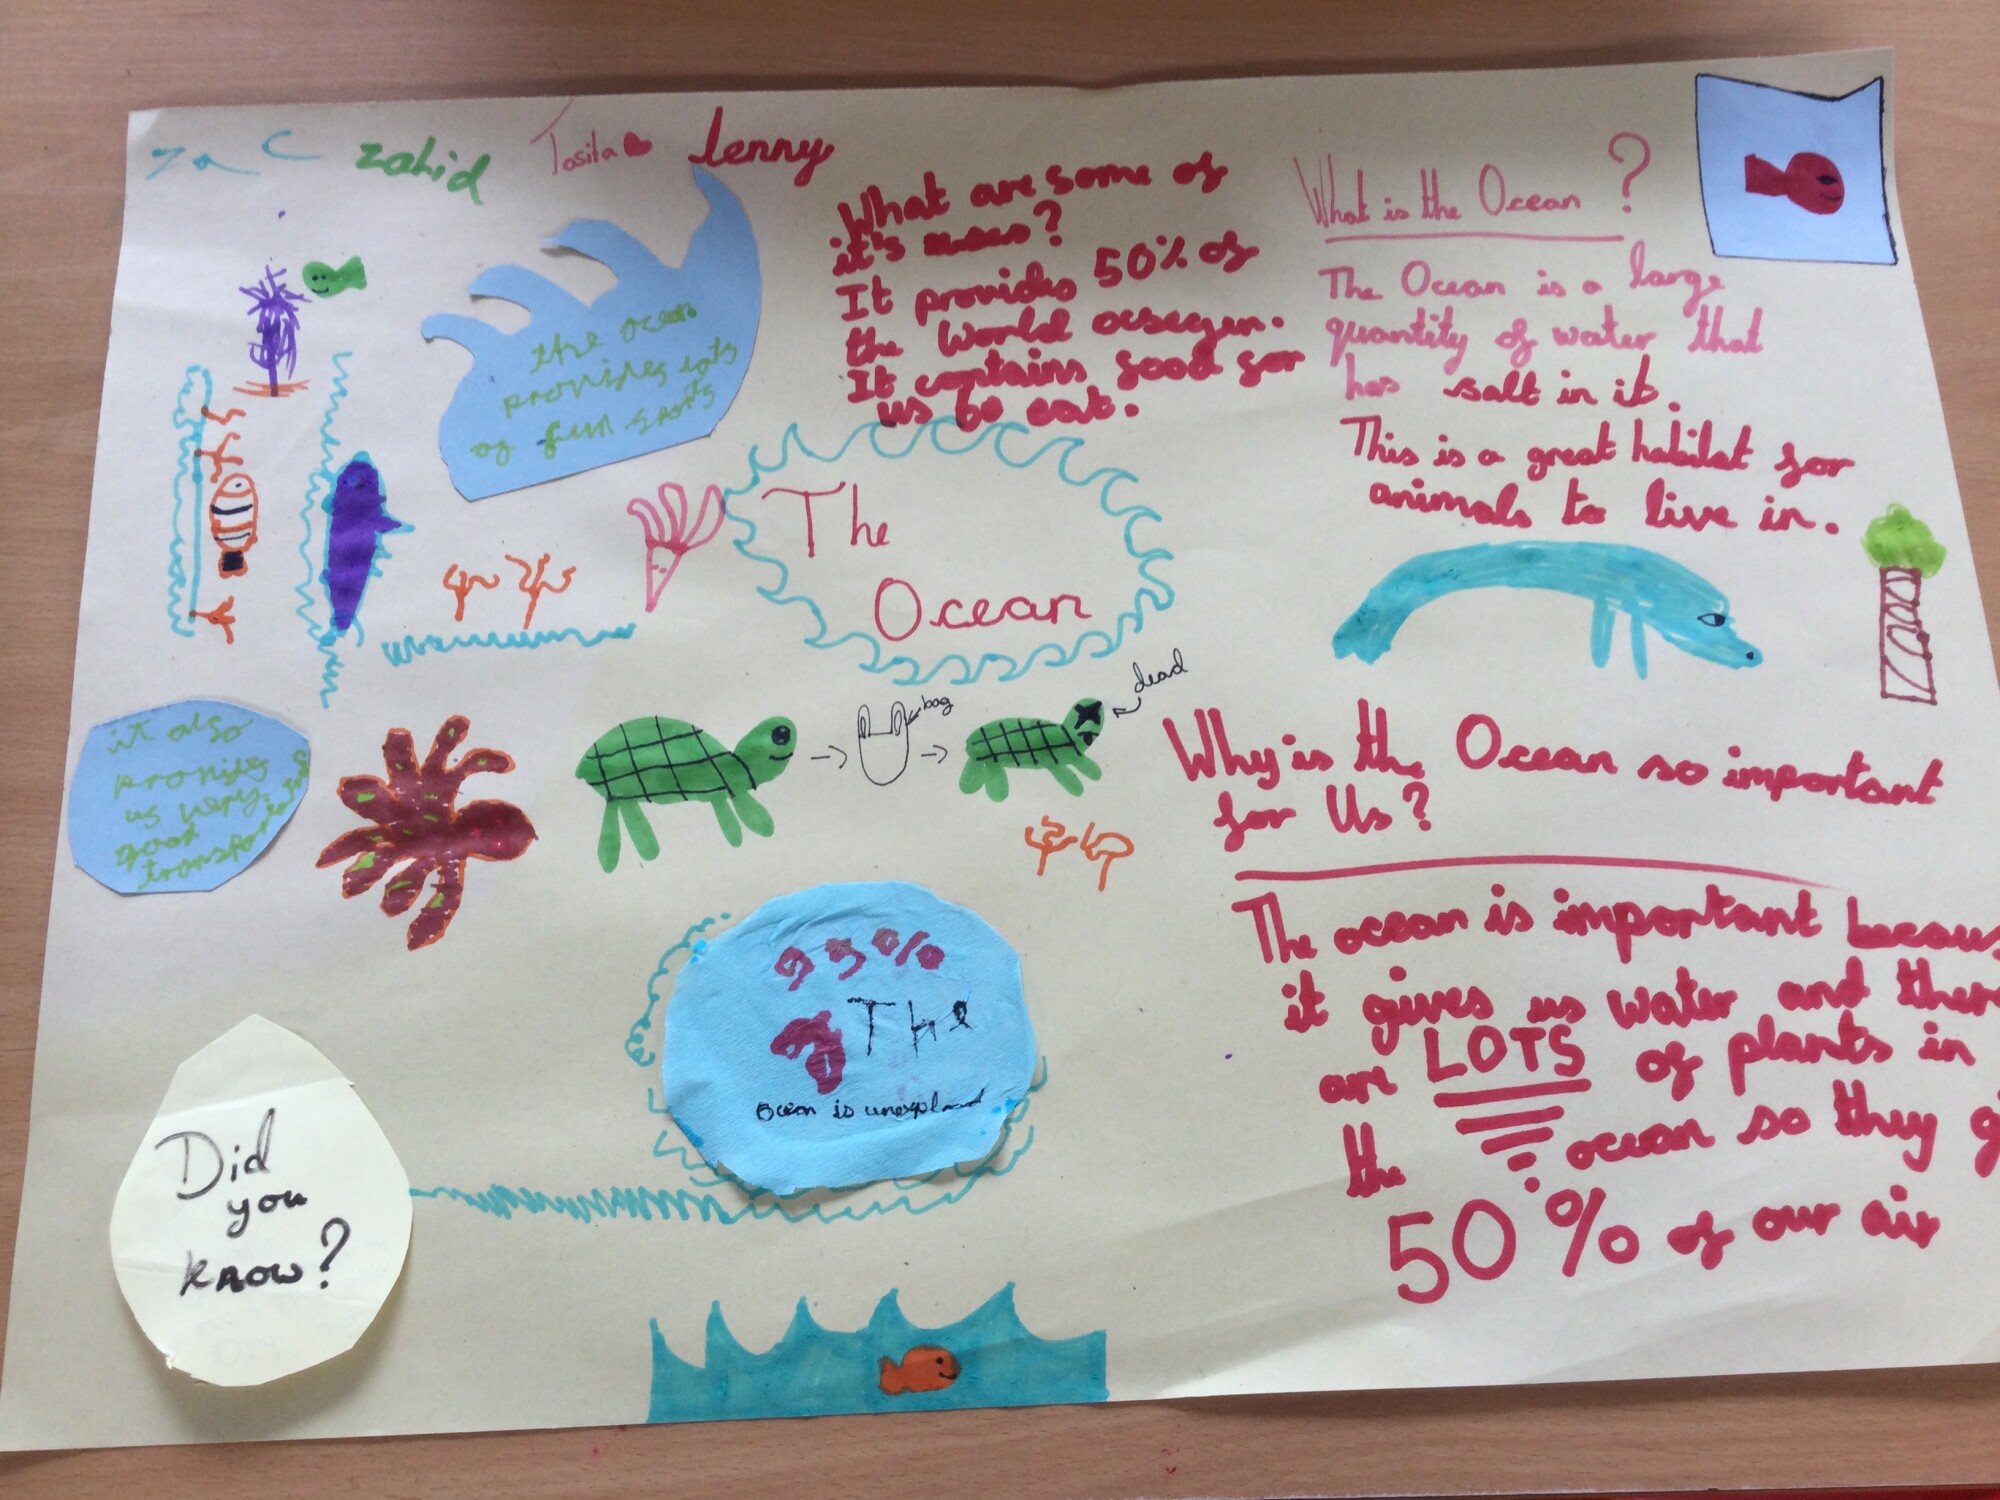 zac zahid Tasita lenny
What are some of
it's uses?
It provides 50% of
the World ocsegen.
It contains food for
us to eat.
What is the Ocean?
The Ocean is a large
quantity of water that
has salt in it.
This is a great habitat for
animals to live in.
the ocean
provides lots
of fun sports
The
Ocean
bag
dead
it also
provides
us very
good
transport
Why is the Ocean so important
for Us?
The ocean is important becaus
it gives us water and ther
are LOTS of plants in
the ocean so they g
50% of our air
95%
of The
Ocean is unexplored
Did
you
know?